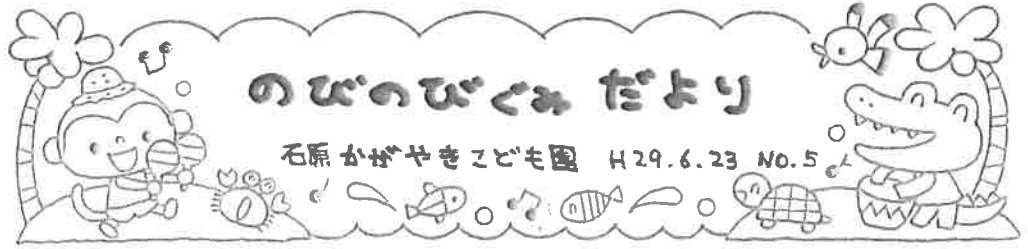 のびのびぐみ だより
石原かがやきこども園 H29.6.23 NO.5